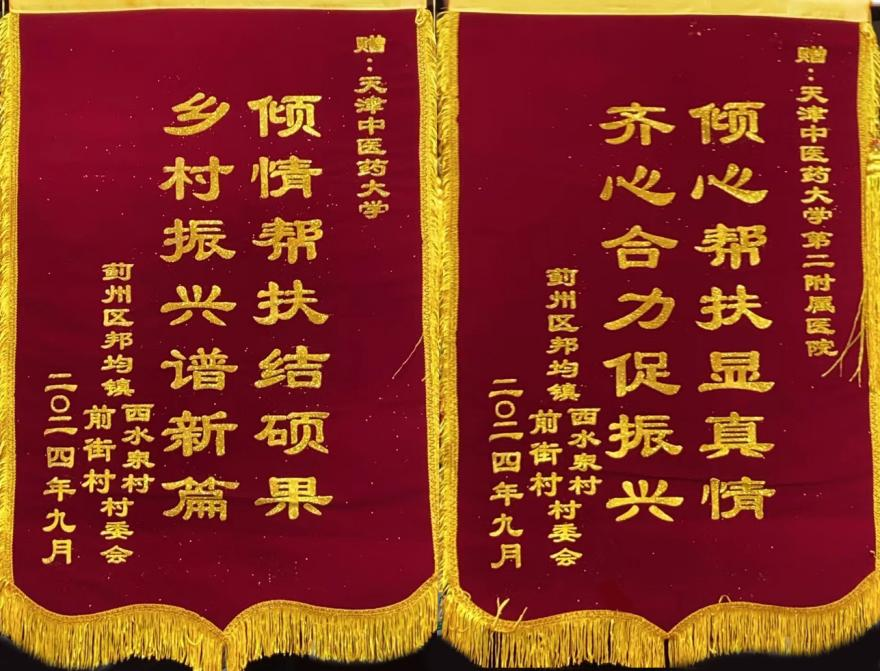 赠：天津中医药大学
倾情帮扶结硕果
乡村振兴谱新篇
蓟州区邦均镇
西水泉村
前街村
村委会
二〇二四年九月
赠：天津中医药大学第二附属医院
倾心帮扶显真情
齐心合力促振兴
蓟州区邦均镇
西水泉村
前街村
村委会
二〇二四年九月